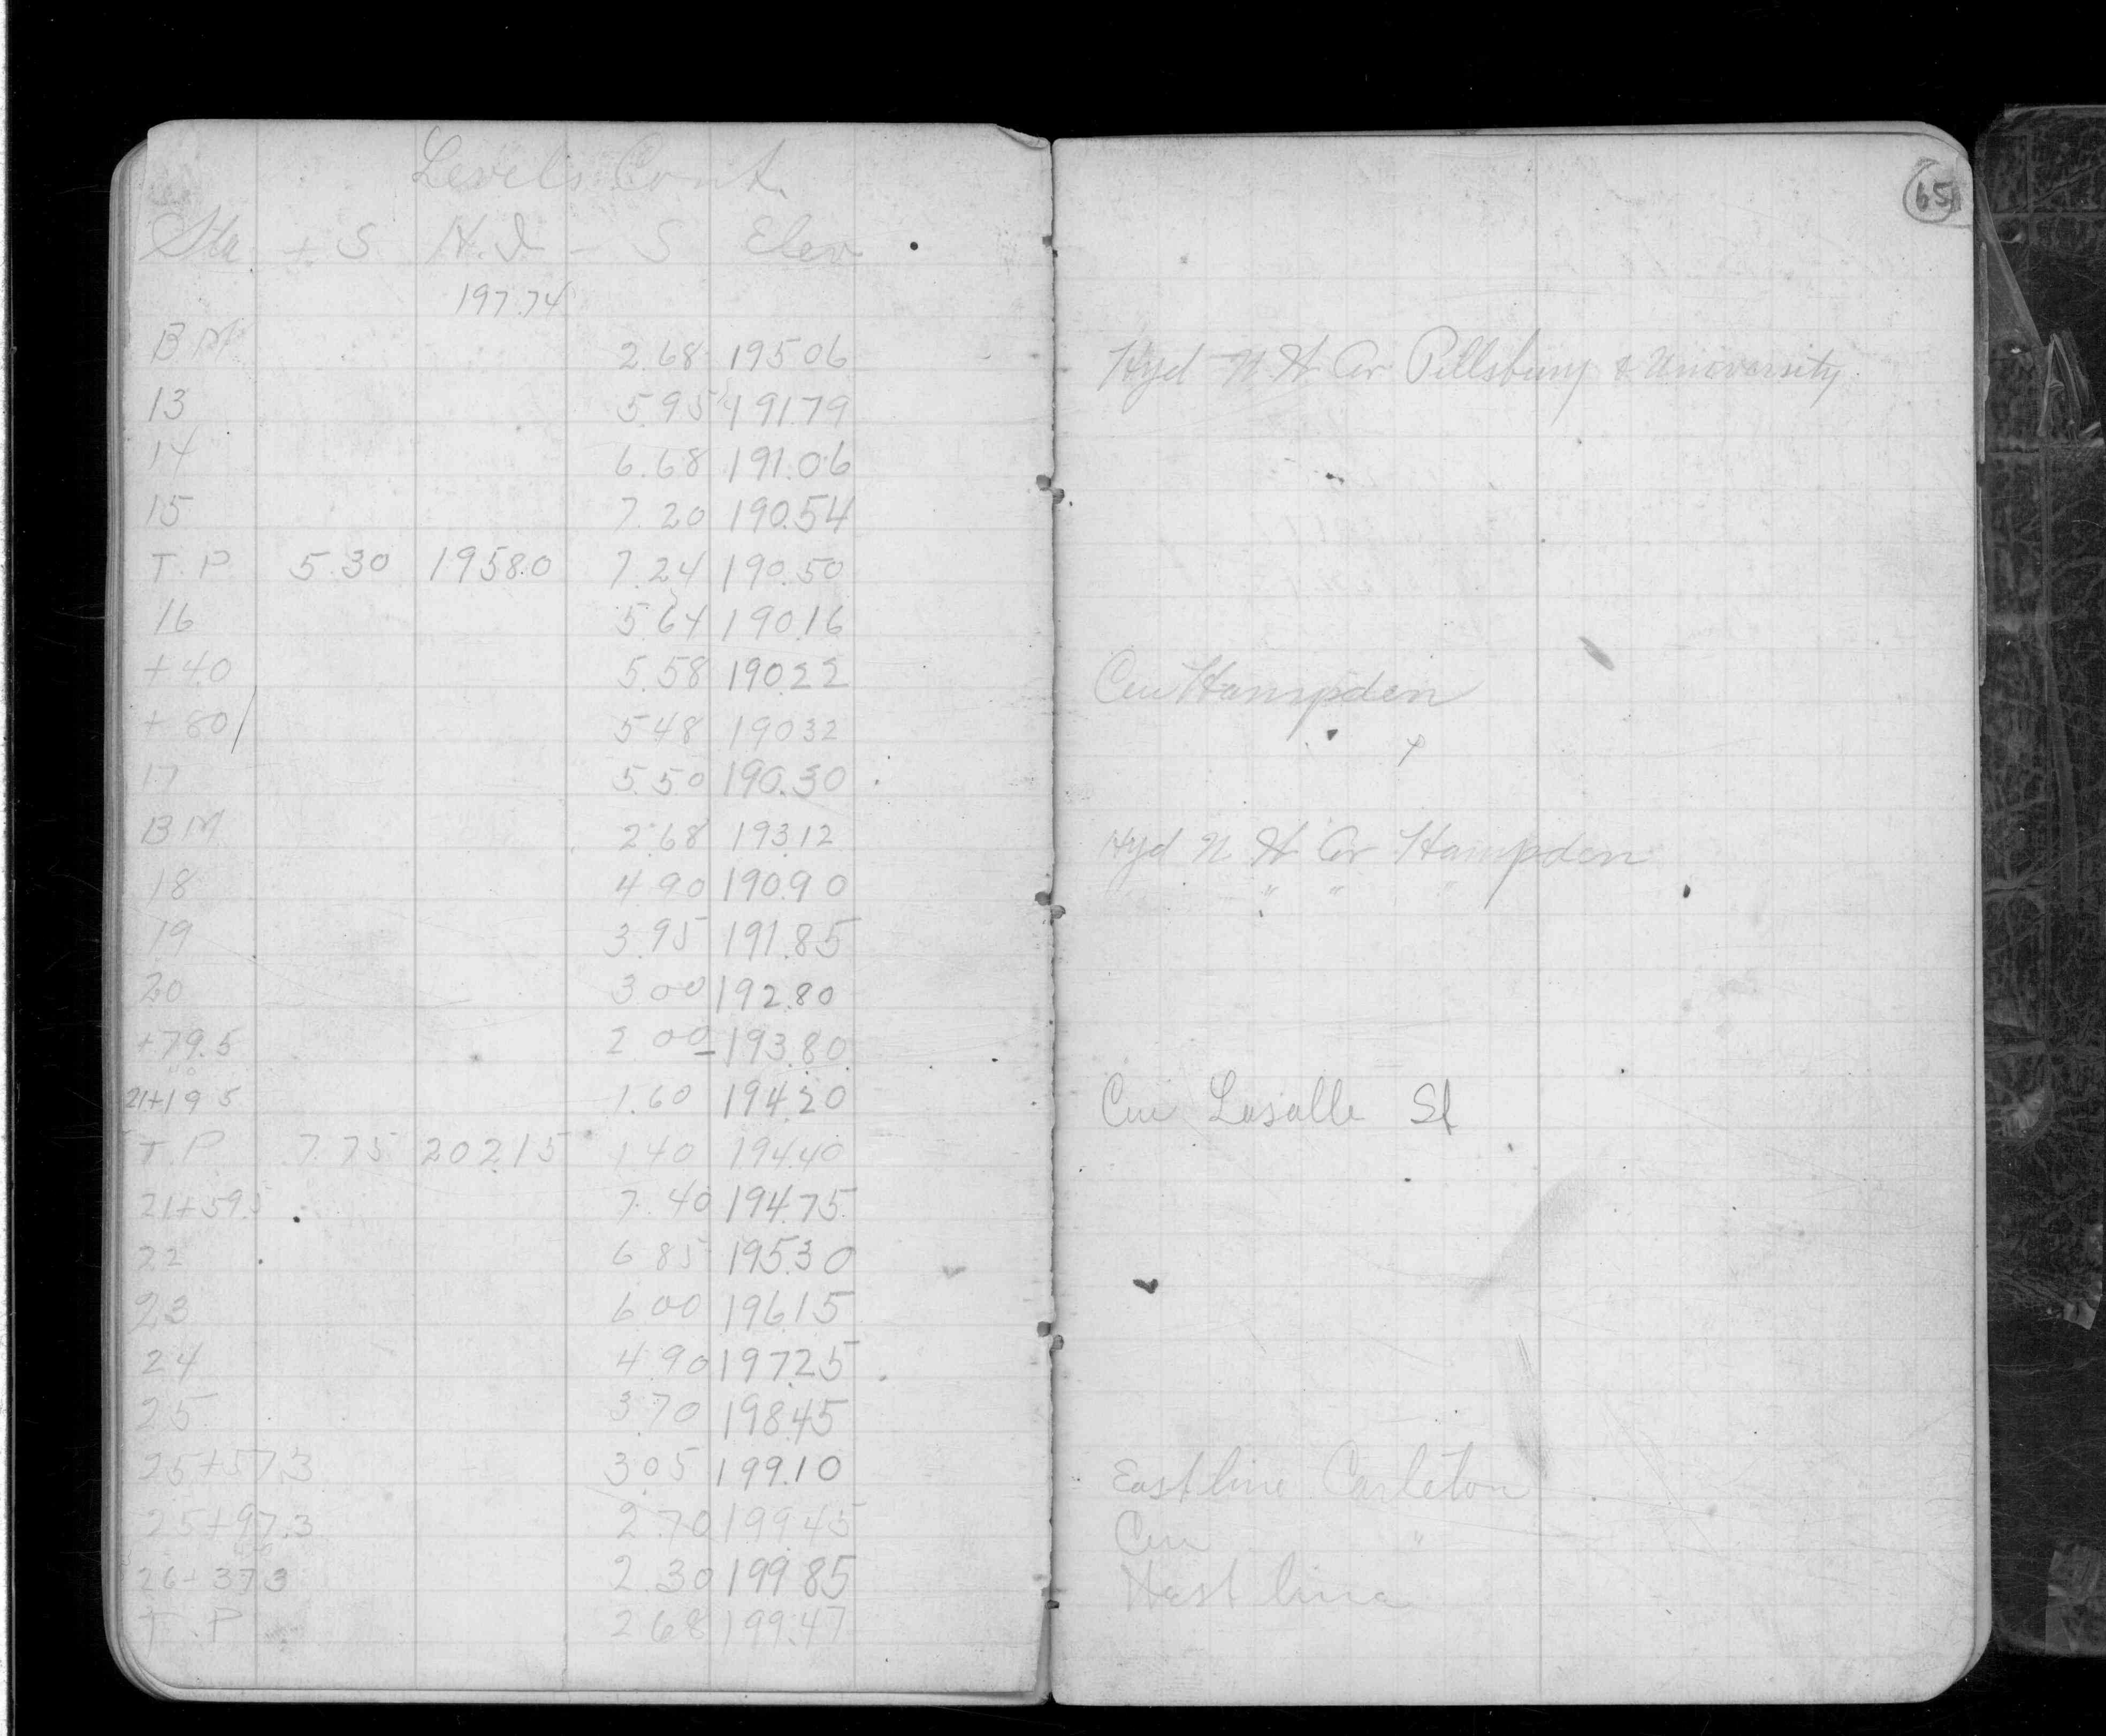 Levels Cont.
Sta + S H.I - S Elev
197.74
B M 2.68 195 06
13 5.95 191.79
14 6.68 191.06
15 7.20 190.54
T.P 5.30 195 8.0 7.24 190.50
16 5 64 190 16
+40 5.58 190 22
+80 5 48 190 32
17 5.50 190.30
B M 2.68 193 12
18 4 90 190.90
19 3 95 191.85
20 3 00 192.80
+79.5 2 00 193.80
21+19 5 1.60 194.20
T.P. 7.75 202.15 1 40 194.40
21+59.5 7.40 194.75
22 6 85 195.30
23 6 00 196 15
24 4 90 197.25
25 3 70 198.45
25+57.3 3 05 199.10
25+97.3 2.70 199 45
26+373 2.30 199.85
T.P 2 68 199.47
65
Hyd N. W Cor Pillsbury & University
Cen Hampden
Hyd N W Cor Hampden
" " "
Cen Lasalle St
East line Carleton
Cen "
West line